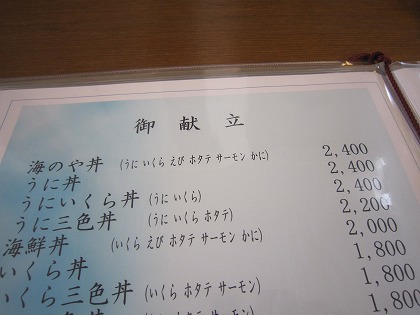 御献立
海のや丼 (うに いくら えび ホタテ サーモン かに) 2,400
うに丼 2,400
うにいくら丼 (うに いくら) 2,400
うに三色丼 (うに いくら ホタテ) 2,200
海鮮丼 (いくら えび ホタテ サーモン かに) 2,000
いくら丼 1,800
いくら三色丼 (いくら ホタテ サーモン) 1,800
1,800